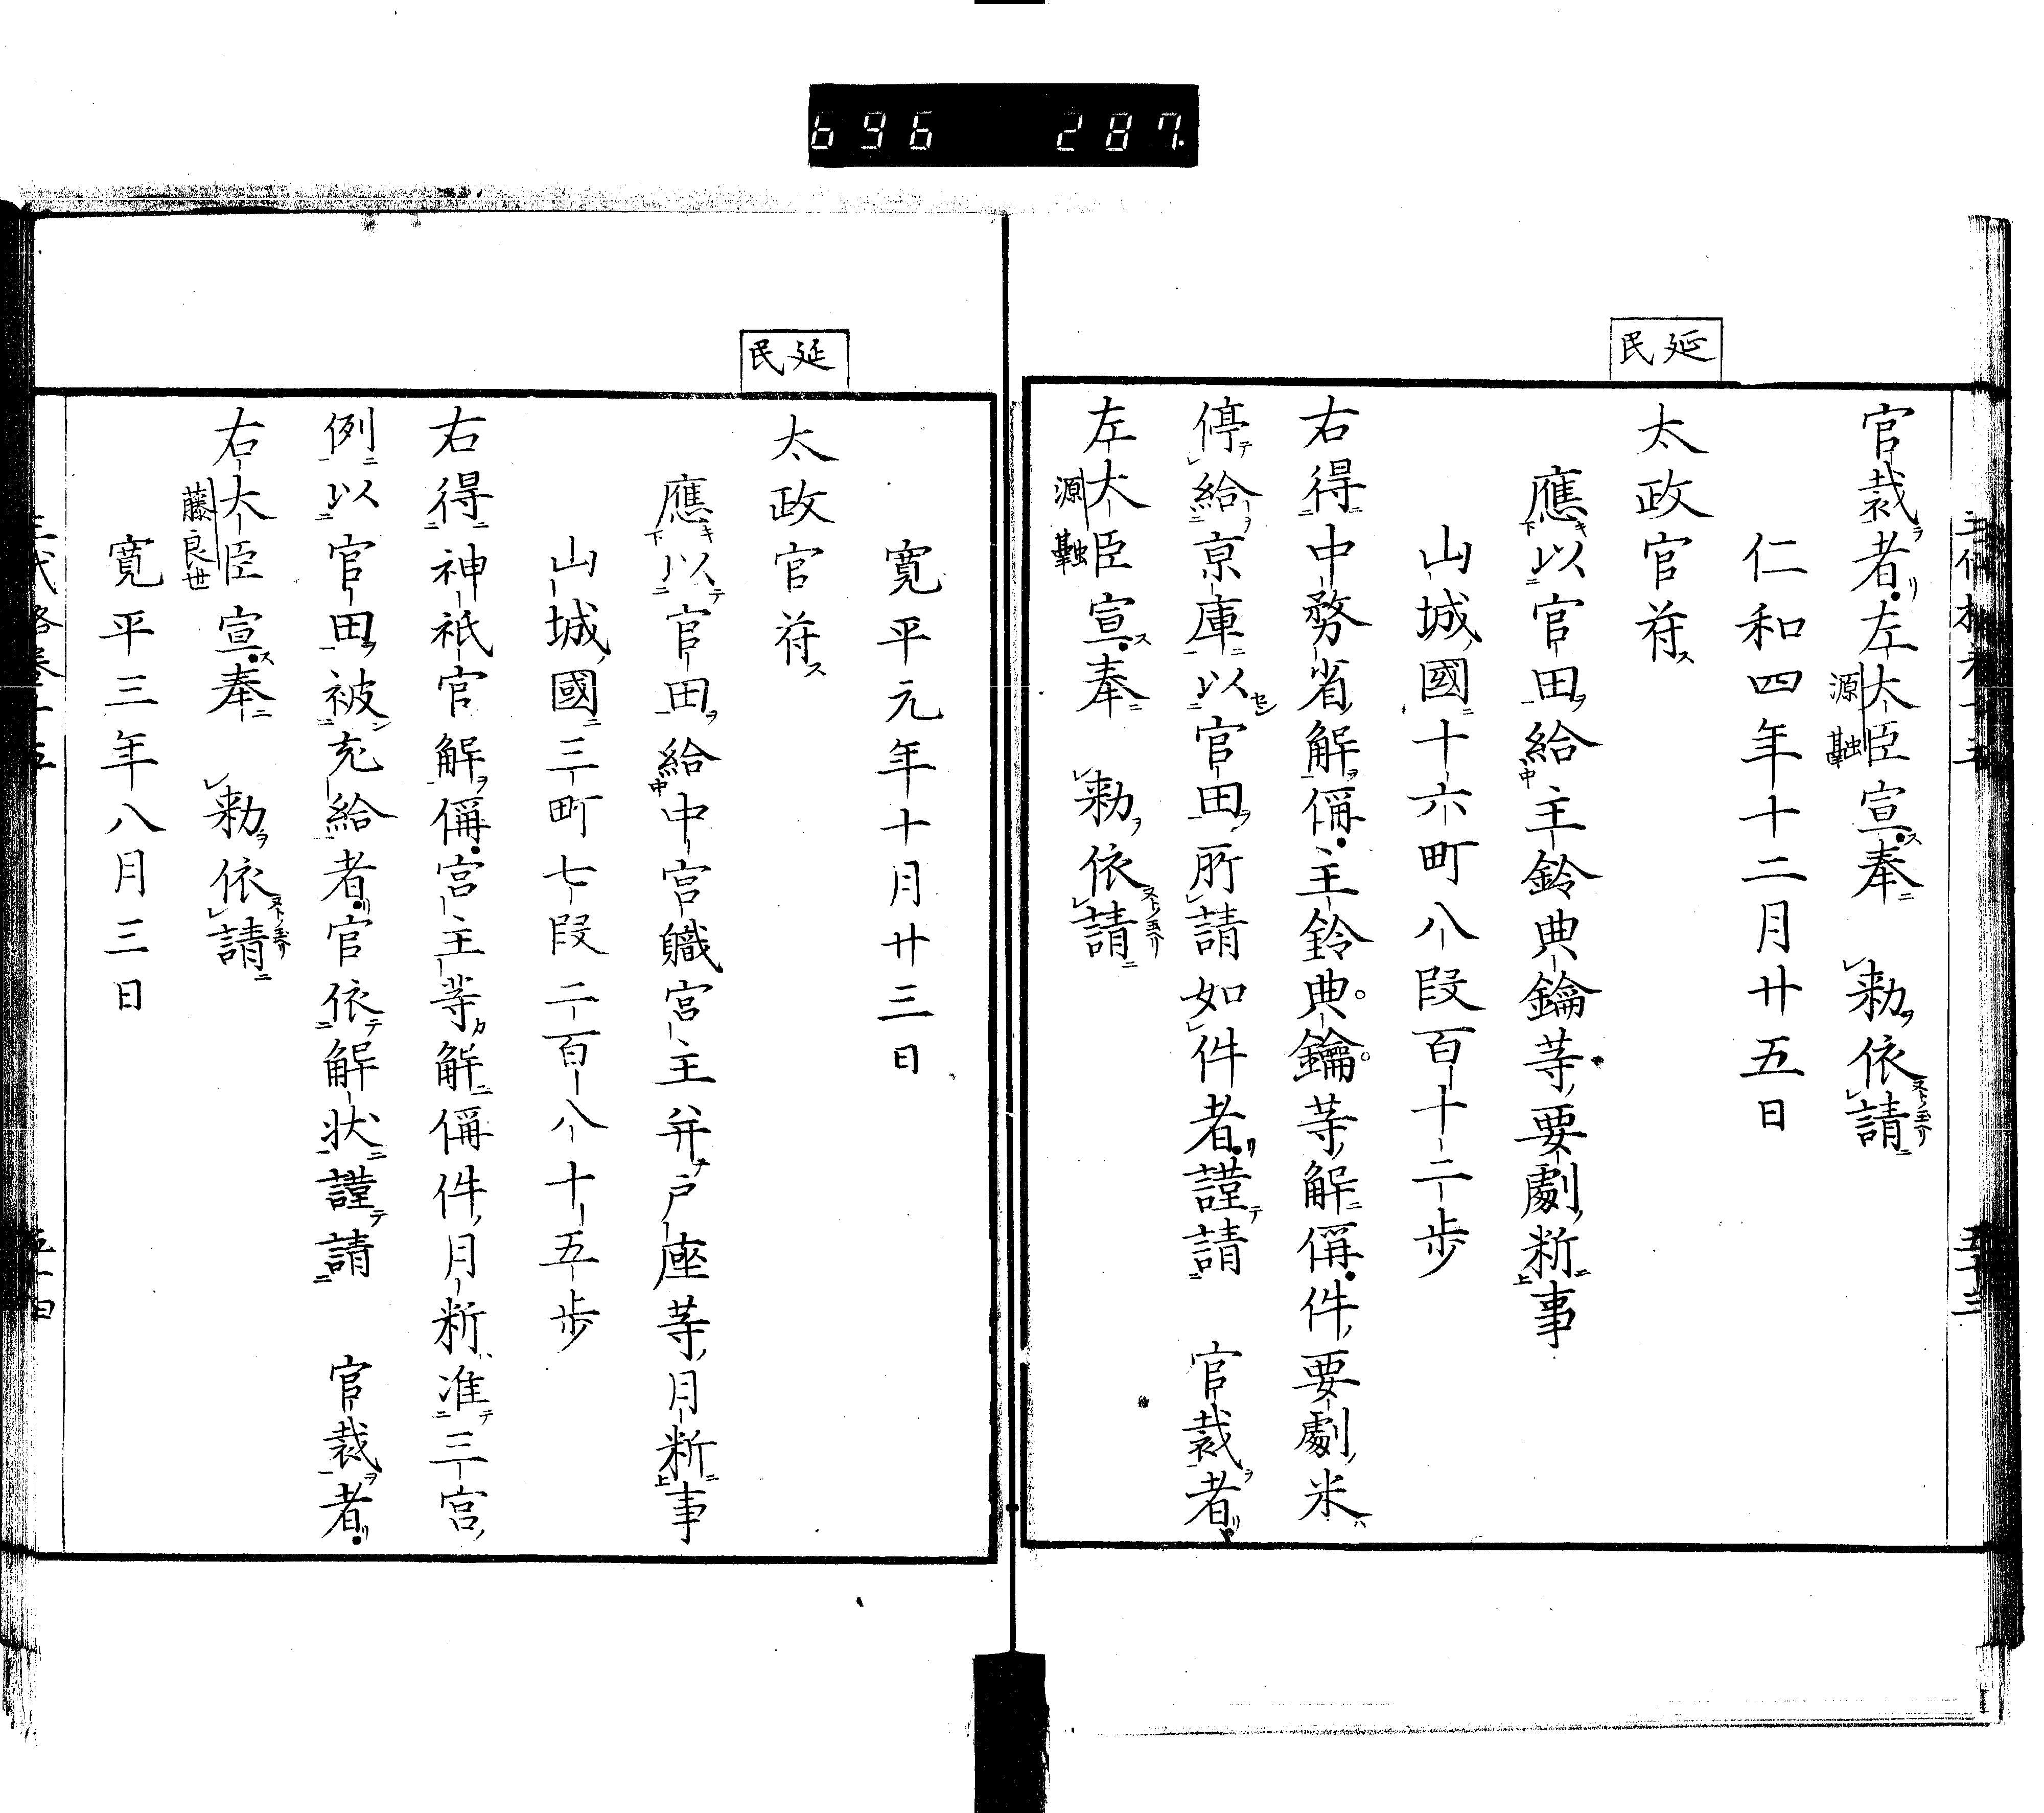 696 287
延民
官裁者左大臣宣奉 勅依請
源融
仁和四年十二月廿五日
太政官符
應以官田給主鈴典鑰等要劇料事
山城國十六町八段百十二歩
右得中務省解偁主鈴典鑰等解偁件要劇米
停給京庫以官田所請如件者謹請 官裁者
左大臣宣奉 勅依請
源融
寛平元年十月廿三日
延民
太政官符
應以官田給中宮職宮主并戸座等月料事
山城國三町七段二百八十五歩
右得神祇官解偁宮主等解偁件月料准三宮
例以官田被充給者官依解状謹請 官裁者
右大臣宣奉 勅依請
藤良世
寛平三年八月三日